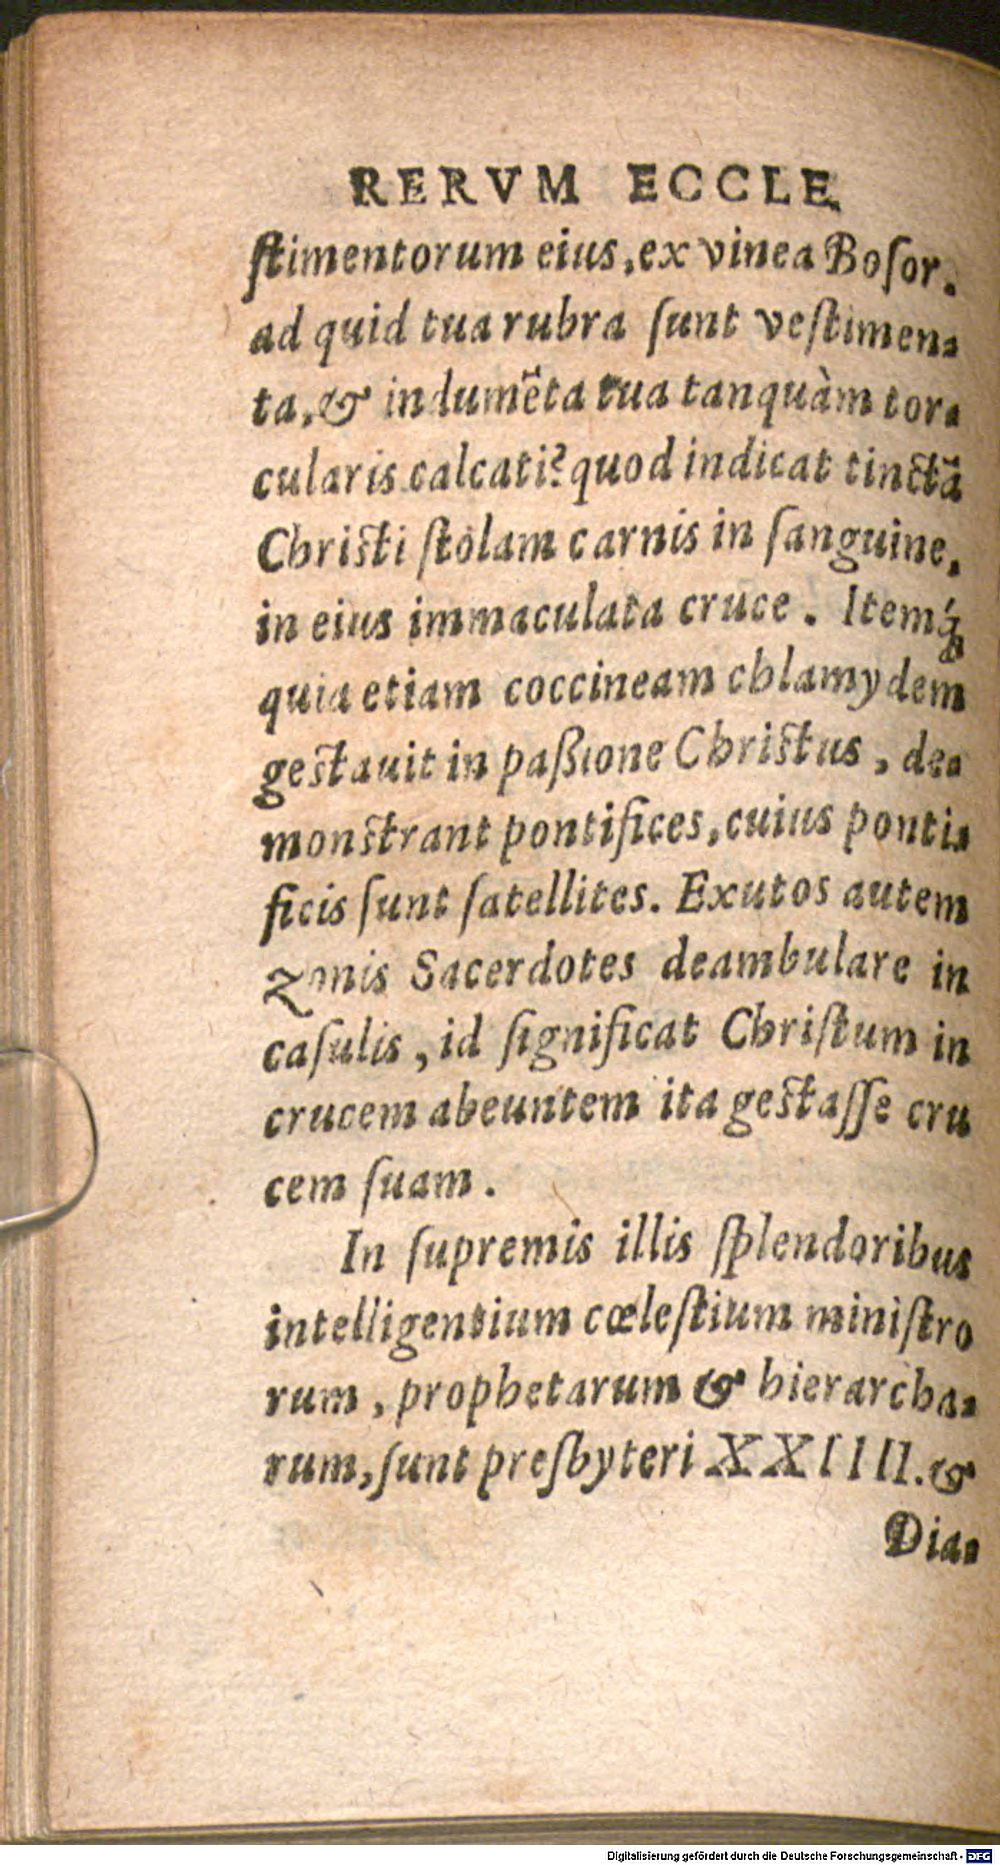 RERVM ECCLE
ſtimentorum eius, ex vinea Boſor.
ad quid tua rubra ſunt veſtimen-
ta, & indumẽta tua tanquàm tor-
cularis calcati? quod indicat tinctã
Chriſti ſtolam carnis in ſanguine,
in eius immaculata cruce. Itemq́;
quia etiam coccineam chlamydem
geſtauit in paßione Chriſtus, de-
monſtrant pontifices, cuius ponti-
ficis ſunt ſatellites. Exutos autem
zonis Sacerdotes deambulare in
caſulis, id ſignificat Chriſtum in
crucem abeuntem ita geſtaſſe cru
cem ſuam.
In ſupremis illis ſplendoribus
intelligentium cœleſtium miniſtro
rum, prophetarum & hierarcha-
rum, ſunt preſbyteri XXIIII. &
Dia-
Digitalisierung gefördert durch die Deutsche Forschungsgemeinschaft - DFG